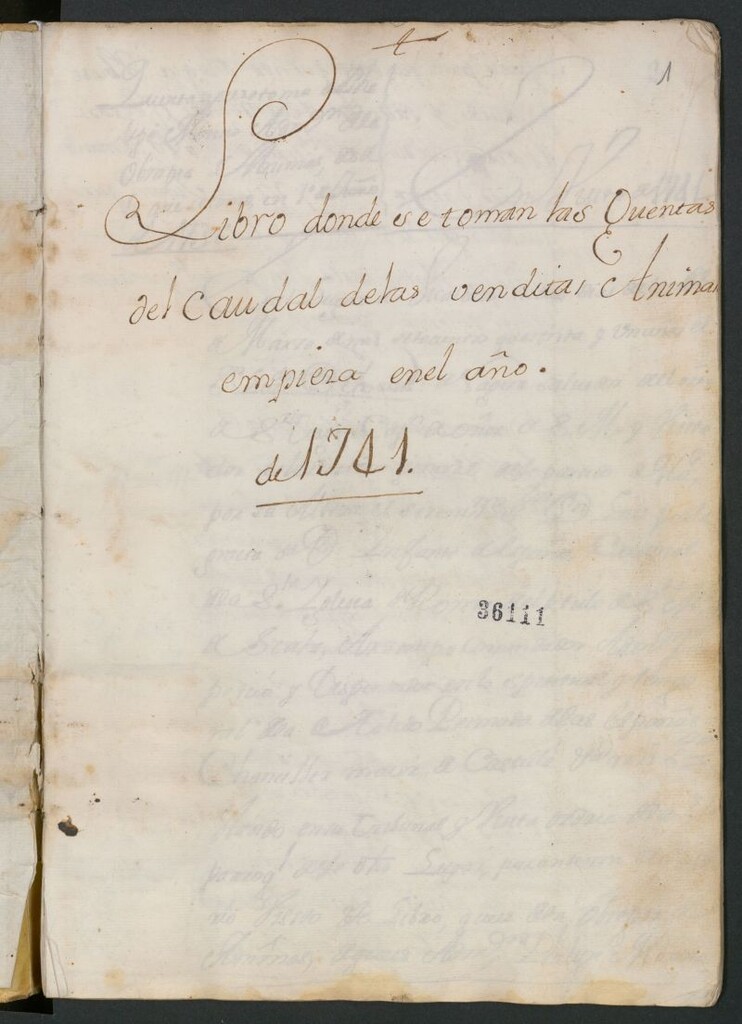 1
Libro donde se toman las Quentas
del Caudal delas venditas Anima
empieza enel año.
de 1741.
36111